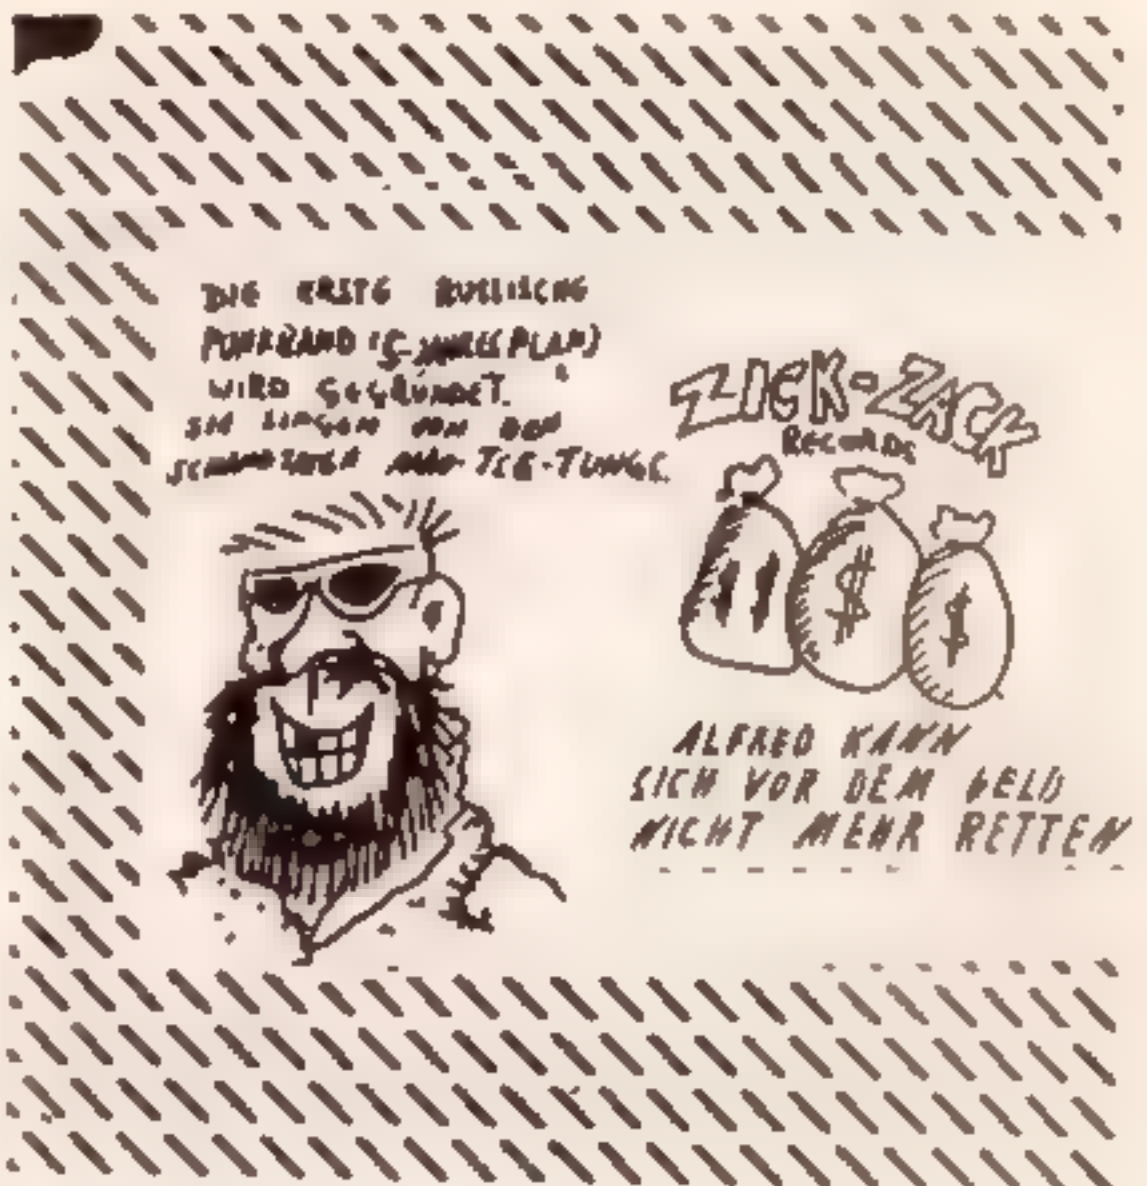 DIE ERSTE RUSSISCHE
PUNKBAND (5-JAHRESPLAN)
WIRD GEGRÜNDET.
SIE SINGEN VON DEN
MAO-TSE-TUNGS.
ZICK-ZACK
RECORDS
$
$
ALFRED KANN
SICH VOR DEM GELD
NICHT MEHR RETTEN